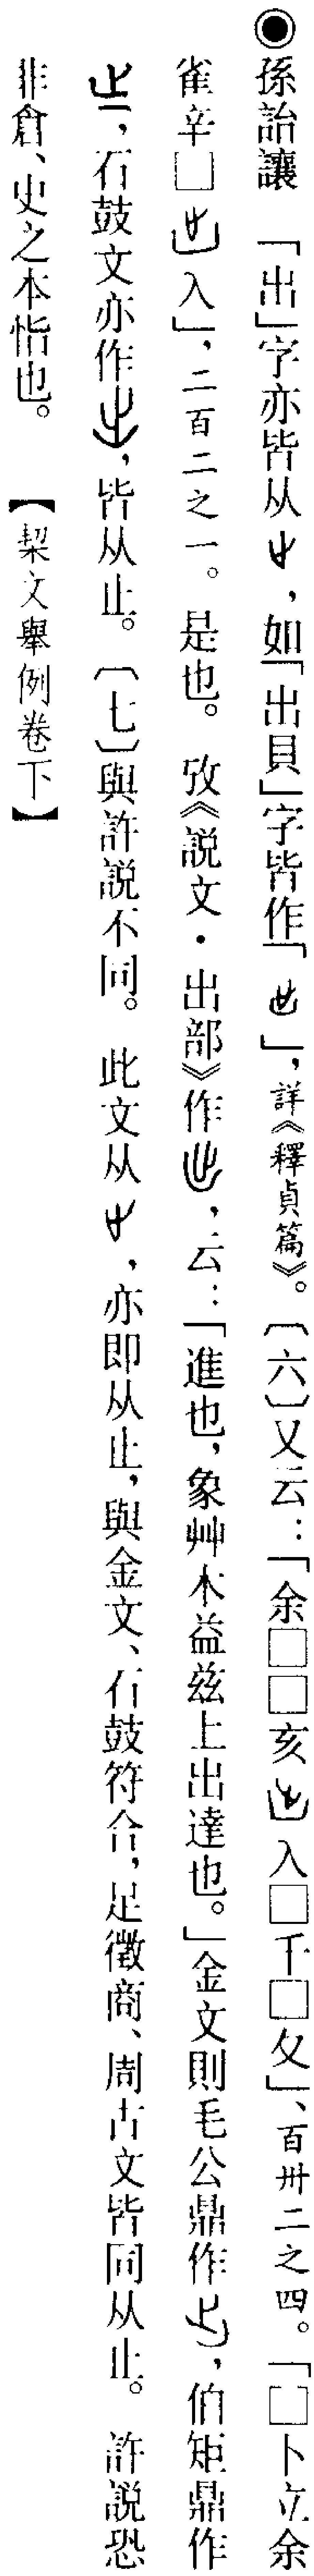 ◉孫詒讓　「出」字亦皆从，如「出貝」字皆作「」，詳《釋貞篇》。〔六〕又云：「余□□亥入□千□夂」、百卅二之四。「□卜立余
雀辛□入」，二百二之一。是也。攷《説文·出部》作，云：「進也，象艸木益兹上出達也。」金文則毛公鼎作，伯矩鼎作
，石鼓文亦作，皆从止。〔七〕與許説不同。此文从，亦即从止，與金文、石鼓符合，足徵商、周古文皆同从止。許説恐
非倉、史之本恉也。　【栔文舉例卷下】